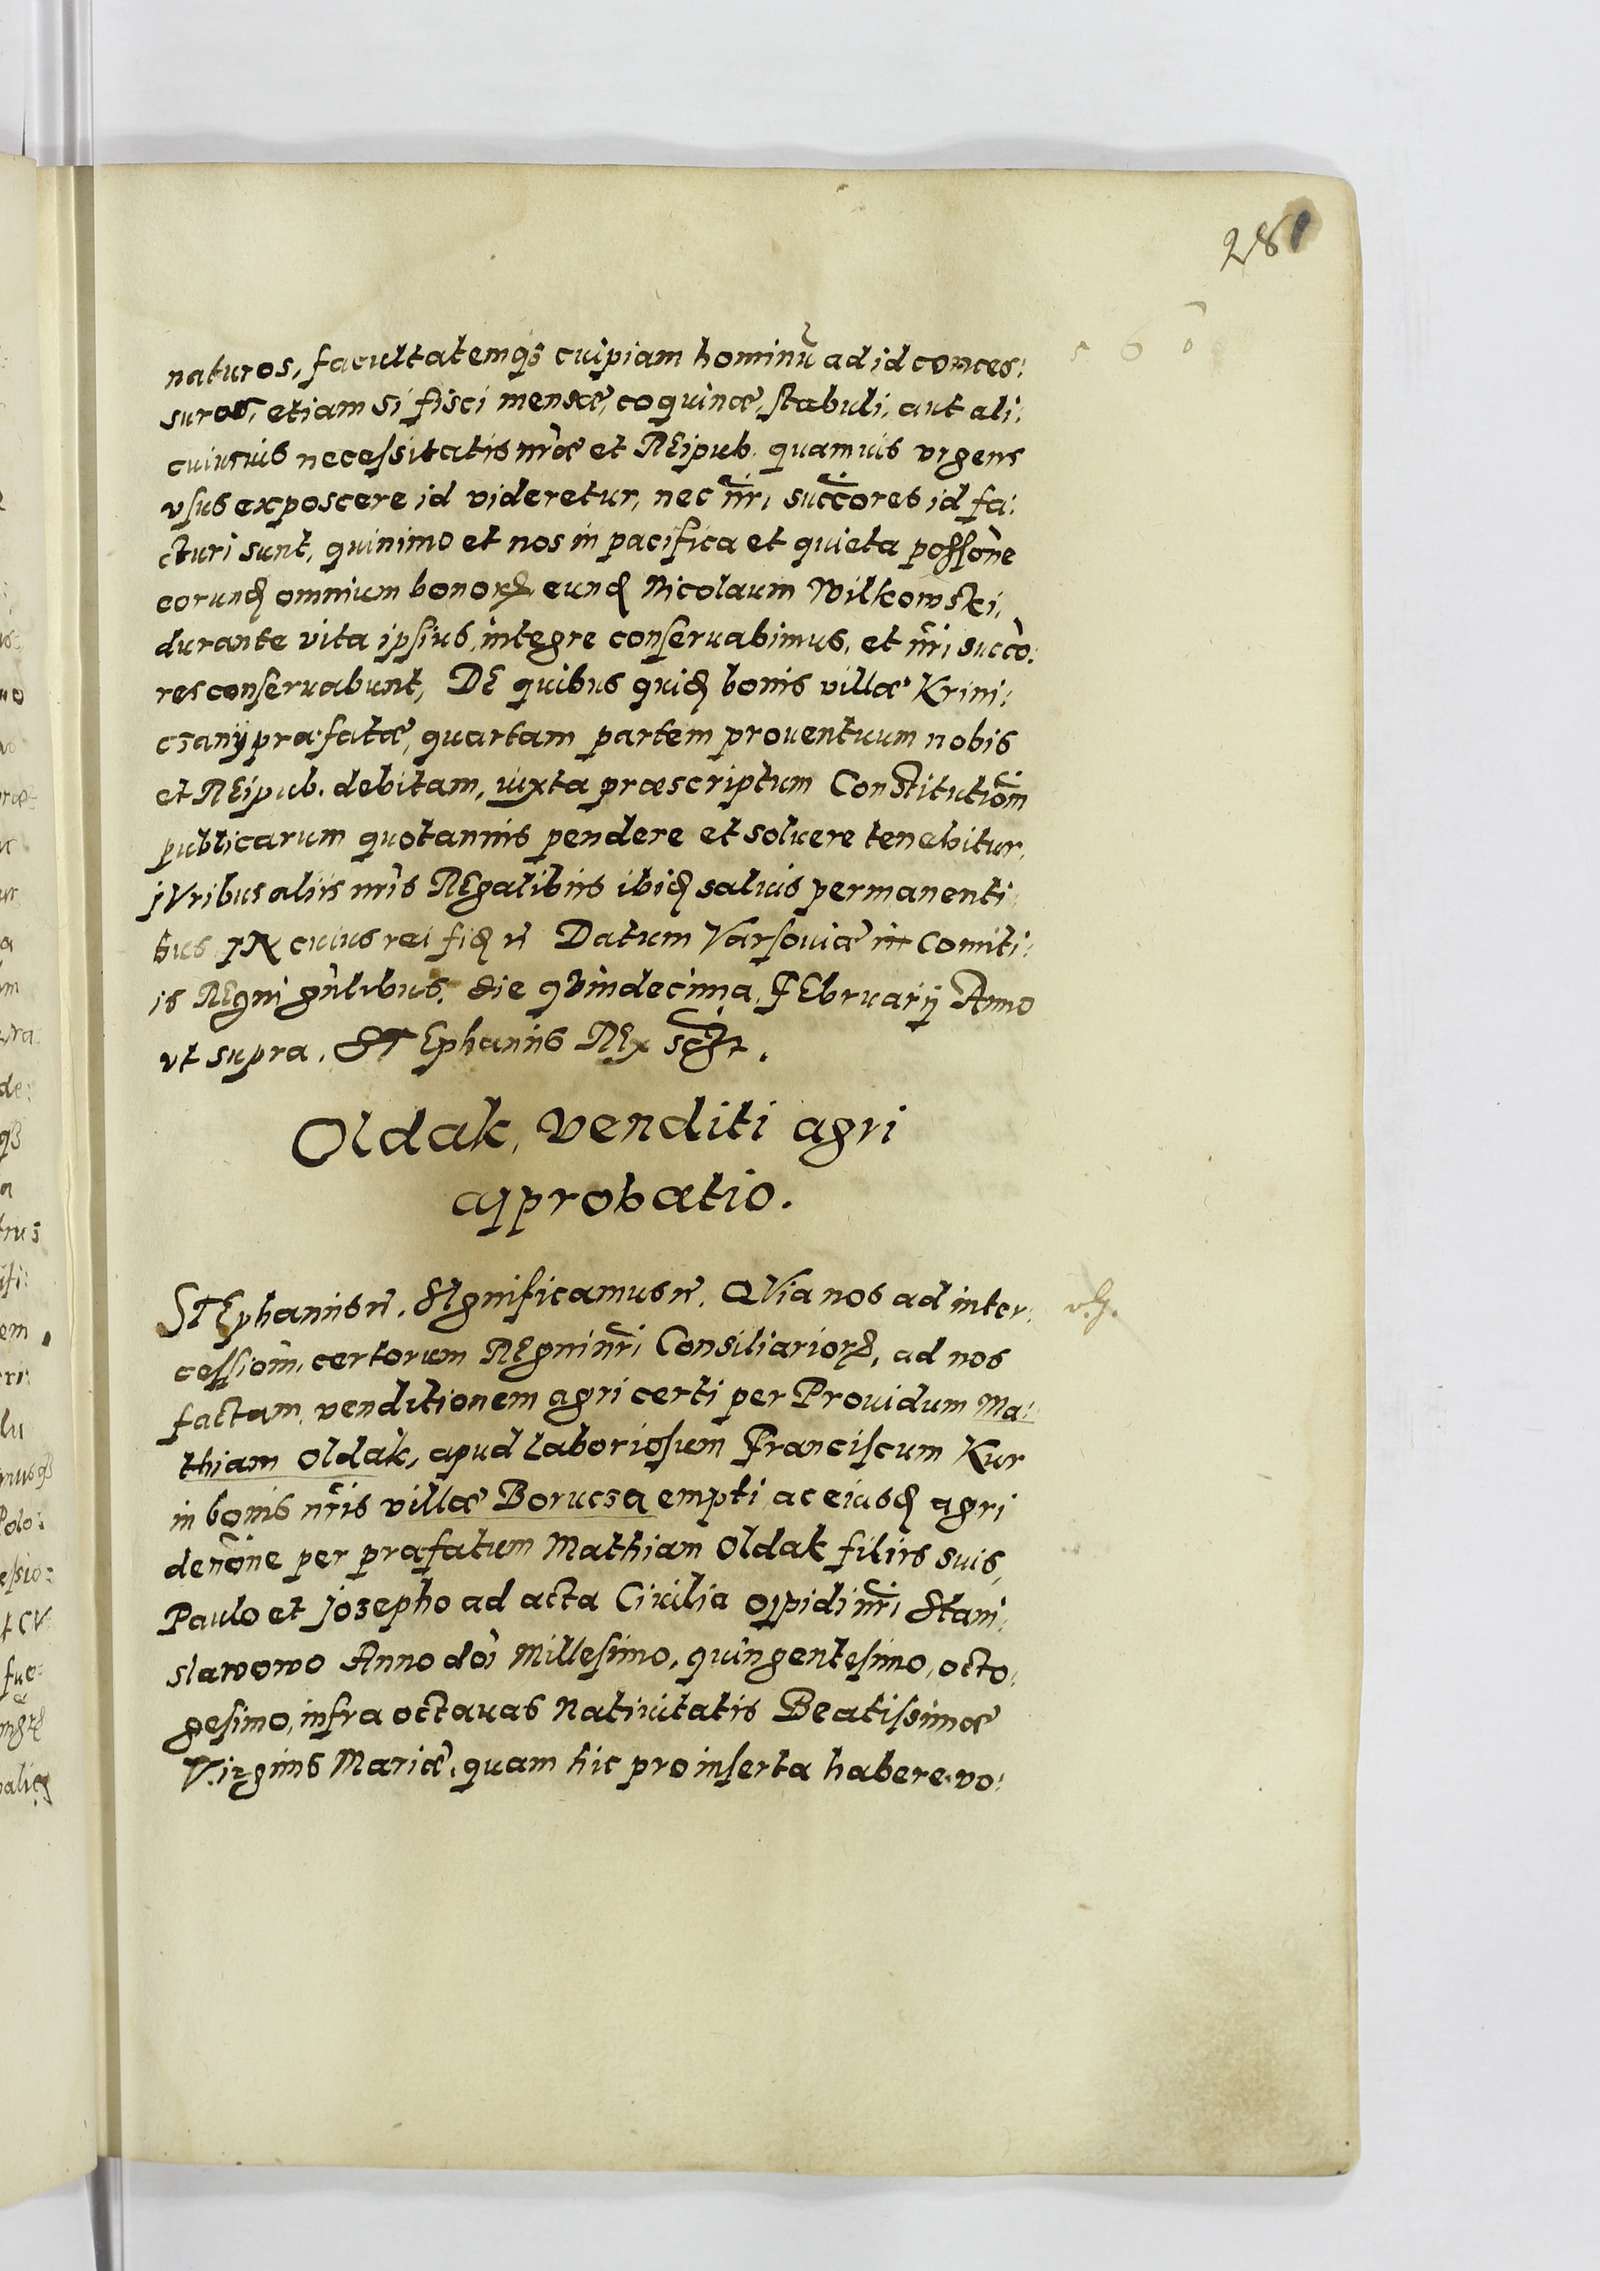 281
naturos, facultatemq₃ cuipiam hominū ad id conces:
suros, etiam si fisci mensæ, coquinæ, stabuli, aut ali:
cuiusuis necessitatis nr̃æ et REipub. quamuis vrgens
vsus exposcere id videretur, nec nr̃i succ̃ores id fa:
cturi sunt, quinimo et nos in pacifica et quieta possõne
eorund omnium bonorꝝ eund Nicolaum Wilkowski,
durante vita ipsius, integre conseruabimus, et nr̃i succõ:
res conseruabunt, DE quibus quid bonis villæ Krini:
csany præfatæ, quartam partem prouentuum nobis
et REipub. debitam, iuxta præscriptum Constitutiom̃
publicarum quotannis pendere et soluere tenebitur,
jVribus aliis nr̃is REgalibus ibid saluis permanenti
bus JN cuius rei fid ñ Datum Varsouiæ in Comiti:
is REgni gñlibus. die qVindecima, FEbruarij Anno
vt supra. STEphanus REx sc̃z̃t.
Oldak, venditi agri
approbatio.
STEphanus ñ. SIgnificamus ñ. QVia nos ad inter:
cessiom̃, certorum REgni nr̃i Consiliariorꝝ, ad nos
factam, venditionem agri certi per Prouidum Ma:
thiam Oldak, apud laboriosum Franciscum Kur
in bonis nr̃is villæ Borucsa empti, ac eiusd agri
denõne per præfatum Mathiam Oldak filiis suis,
Paulo et Josepho ad acta Ciuilia oppidi nr̃i Stani:
slawowo Anno doĩ Millesimo, quingentesimo, octo:
gesimo, infra octauas Natiuitatis Beatissimæ
Virginis Mariæ, quam hic pro inserta habere vo: